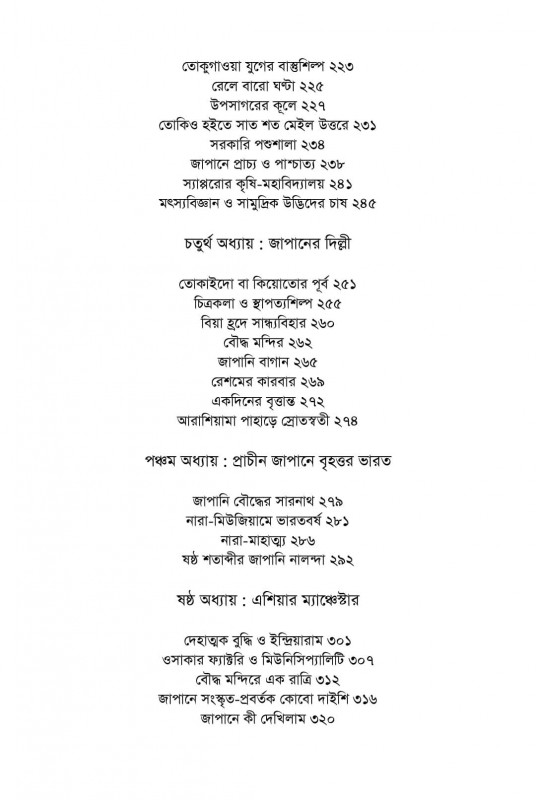 তোকুগাওয়া যুগের বাস্তুশিল্প ২২৩
রেলে বারো ঘণ্টা ২২৫
উপসাগরের কূলে ২২৭
তোকিও হইতে সাত শত মেইল উত্তরে ২৩১
সরকারি পশুশালা ২৩৪
জাপানে প্রাচ্য ও পাশ্চাত্য ২৩৮
স্যাপ্পরোর কৃষি-মহাবিদ্যালয় ২৪১
মৎস্যবিজ্ঞান ও সামুদ্রিক উদ্ভিদের চাষ ২৪৫
চতুর্থ অধ্যায় : জাপানের দিল্লী
তোকাইদো বা কিয়োতোর পূর্ব ২৫১
চিত্রকলা ও স্থাপত্যশিল্প ২৫৫
বিয়া হ্রদে সান্ধ্যবিহার ২৬০
বৌদ্ধ মন্দির ২৬২
জাপানি বাগান ২৬৫
রেশমের কারবার ২৬৯
একদিনের বৃত্তান্ত ২৭২
আরাশিয়ামা পাহাড়ে স্রোতস্বতী ২৭৪
পঞ্চম অধ্যায় : প্রাচীন জাপানে বৃহত্তর ভারত
জাপানি বৌদ্ধের সারনাথ ২৭৯
নারা-মিউজিয়ামে ভারতবর্ষ ২৮১
নারা-মাহাত্ম্য ২৮৬
ষষ্ঠ শতাব্দীর জাপানি নালন্দা ২৯২
ষষ্ঠ অধ্যায় : এশিয়ার ম্যাঞ্চেস্টার
দেহাত্মক বুদ্ধি ও ইন্দ্রিয়ারাম ৩০১
ওসাকার ফ্যাক্টরি ও মিউনিসিপ্যালিটি ৩০৭
বৌদ্ধ মন্দিরে এক রাত্রি ৩১২
জাপানে সংস্কৃত-প্রবর্তক কোবো দাইশি ৩১৬
জাপানে কী দেখিলাম ৩২০